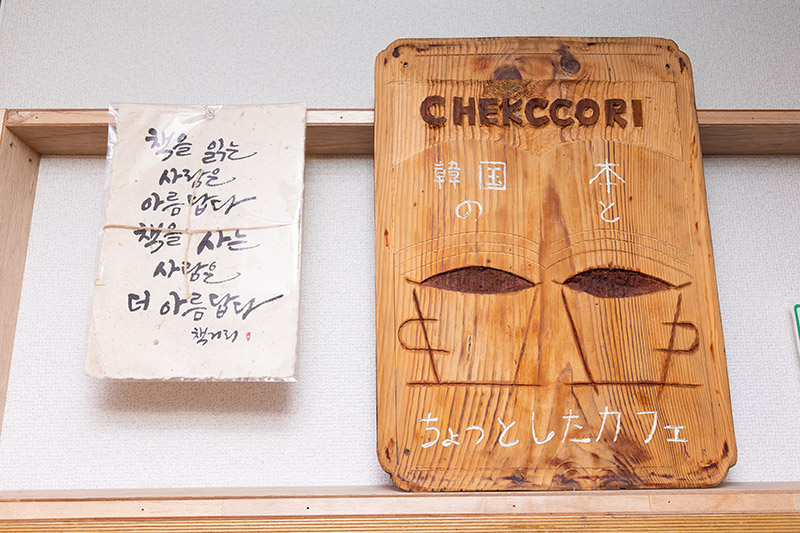 책을 읽는
사람은
아름답다
책을 사는
사람은
더 아름답다
책거리
CHEKCCORI
韓国の
本と
ちょっとしたカフェ